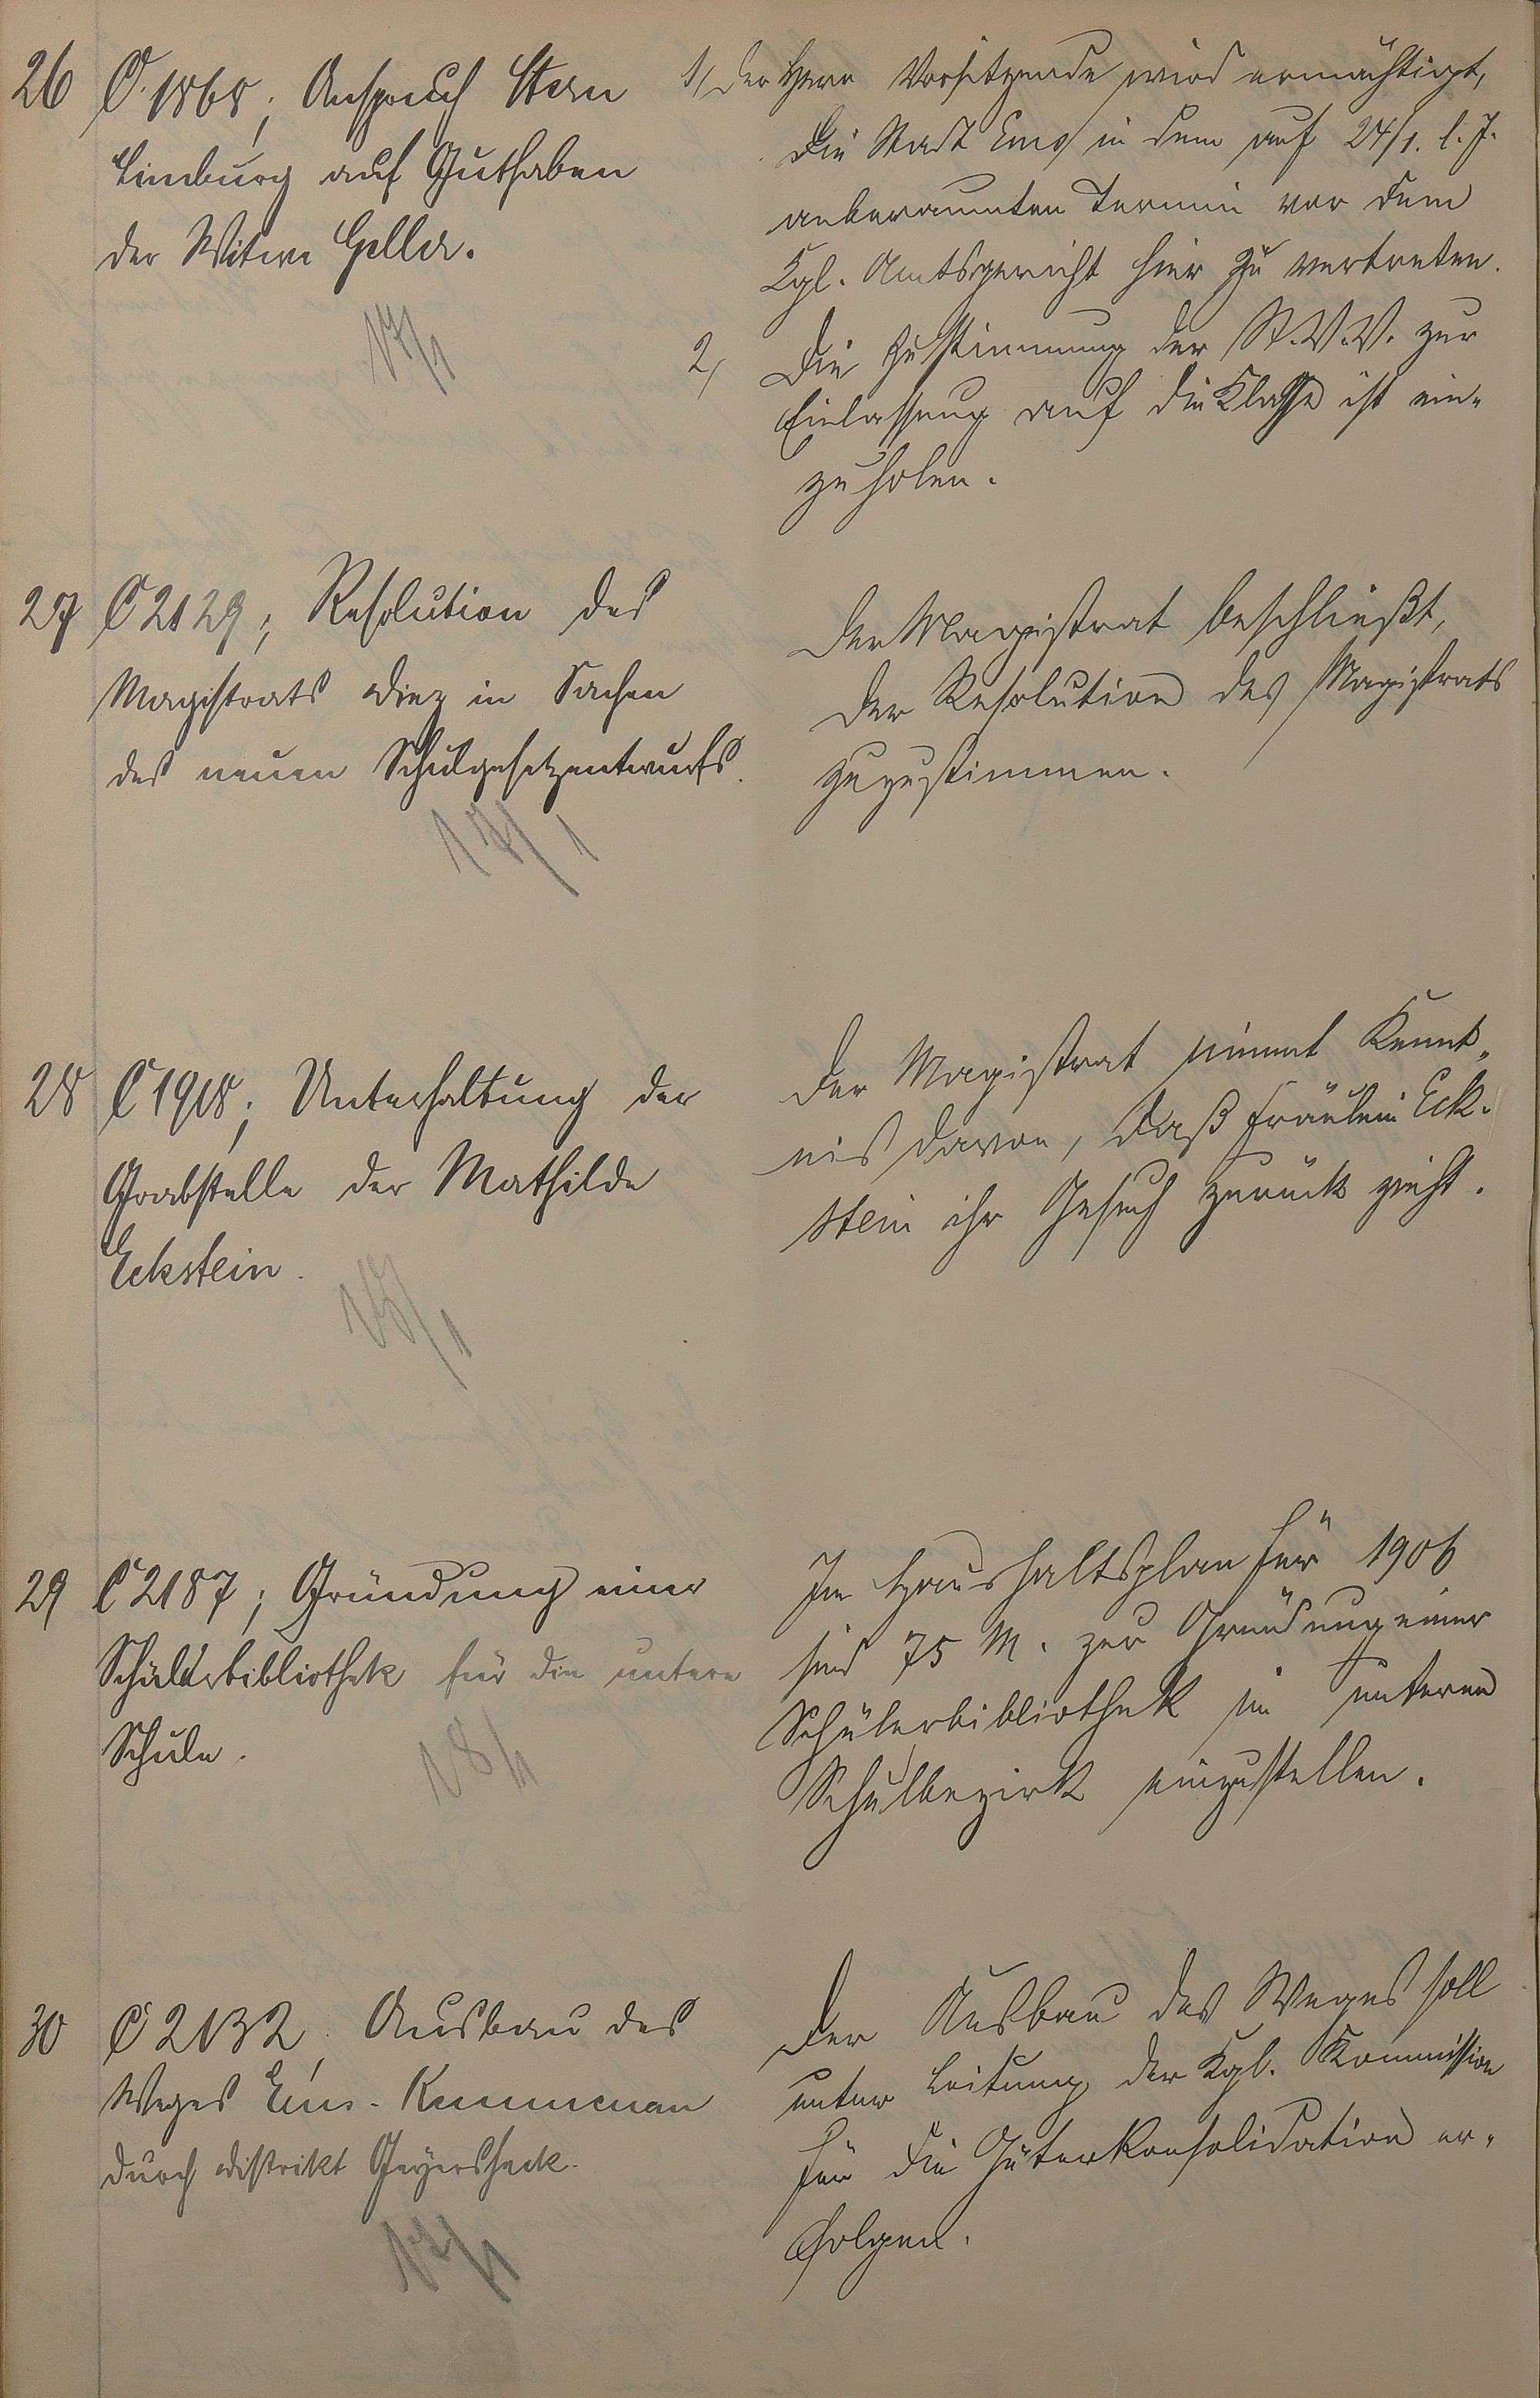 26 C. 1868; Anspruch Stern
Limburg auf Guthaben
der Witwe Geller.
17/1
1/ Der Herr Vorsitzende wird ermächtigt,
die Stadt Ems in dem auf 24/1. l. J.
anberaumten Termin vor dem
Kgl. Amtsgericht hier zu vertreten.
2/ Die Zustimmung der St.V.V. zur
Einlassung auf die Klage ist ein-
zuholen.
27 C 2129; Resolution des
Magistrats Diez in Sachen
des neuen Schulgesetzentwurfs.
17/1
Der Magistrat beschließt,
der Resolution des Magistrats
zuzustimmen.
28 C 1918; Unterhaltung der
Grabstelle der Mathilde
Eckstein.
18/1
Der Magistrat nimmt Kennt-
nis davon, daß Fräulein Eck-
stein ihr Gesuch zurück zieht.
29 C 2187; Gründung einer
Schülerbibliothek für die untere
Schule.
18/1
Im Haushaltsplan für 1906
sind 75 M. zur Gründung einer
Schülerbibliothek im unteren
Schulbezirk einzustellen.
30 C 2132. Ausbau des
Weges Ems-Kemmenau
durch Distrikt Geyersheck.
17/1
Der Ausbau des Weges soll
unter Leitung der Kgl. Kommission
für die Güterkonsolidation er-
folgen.